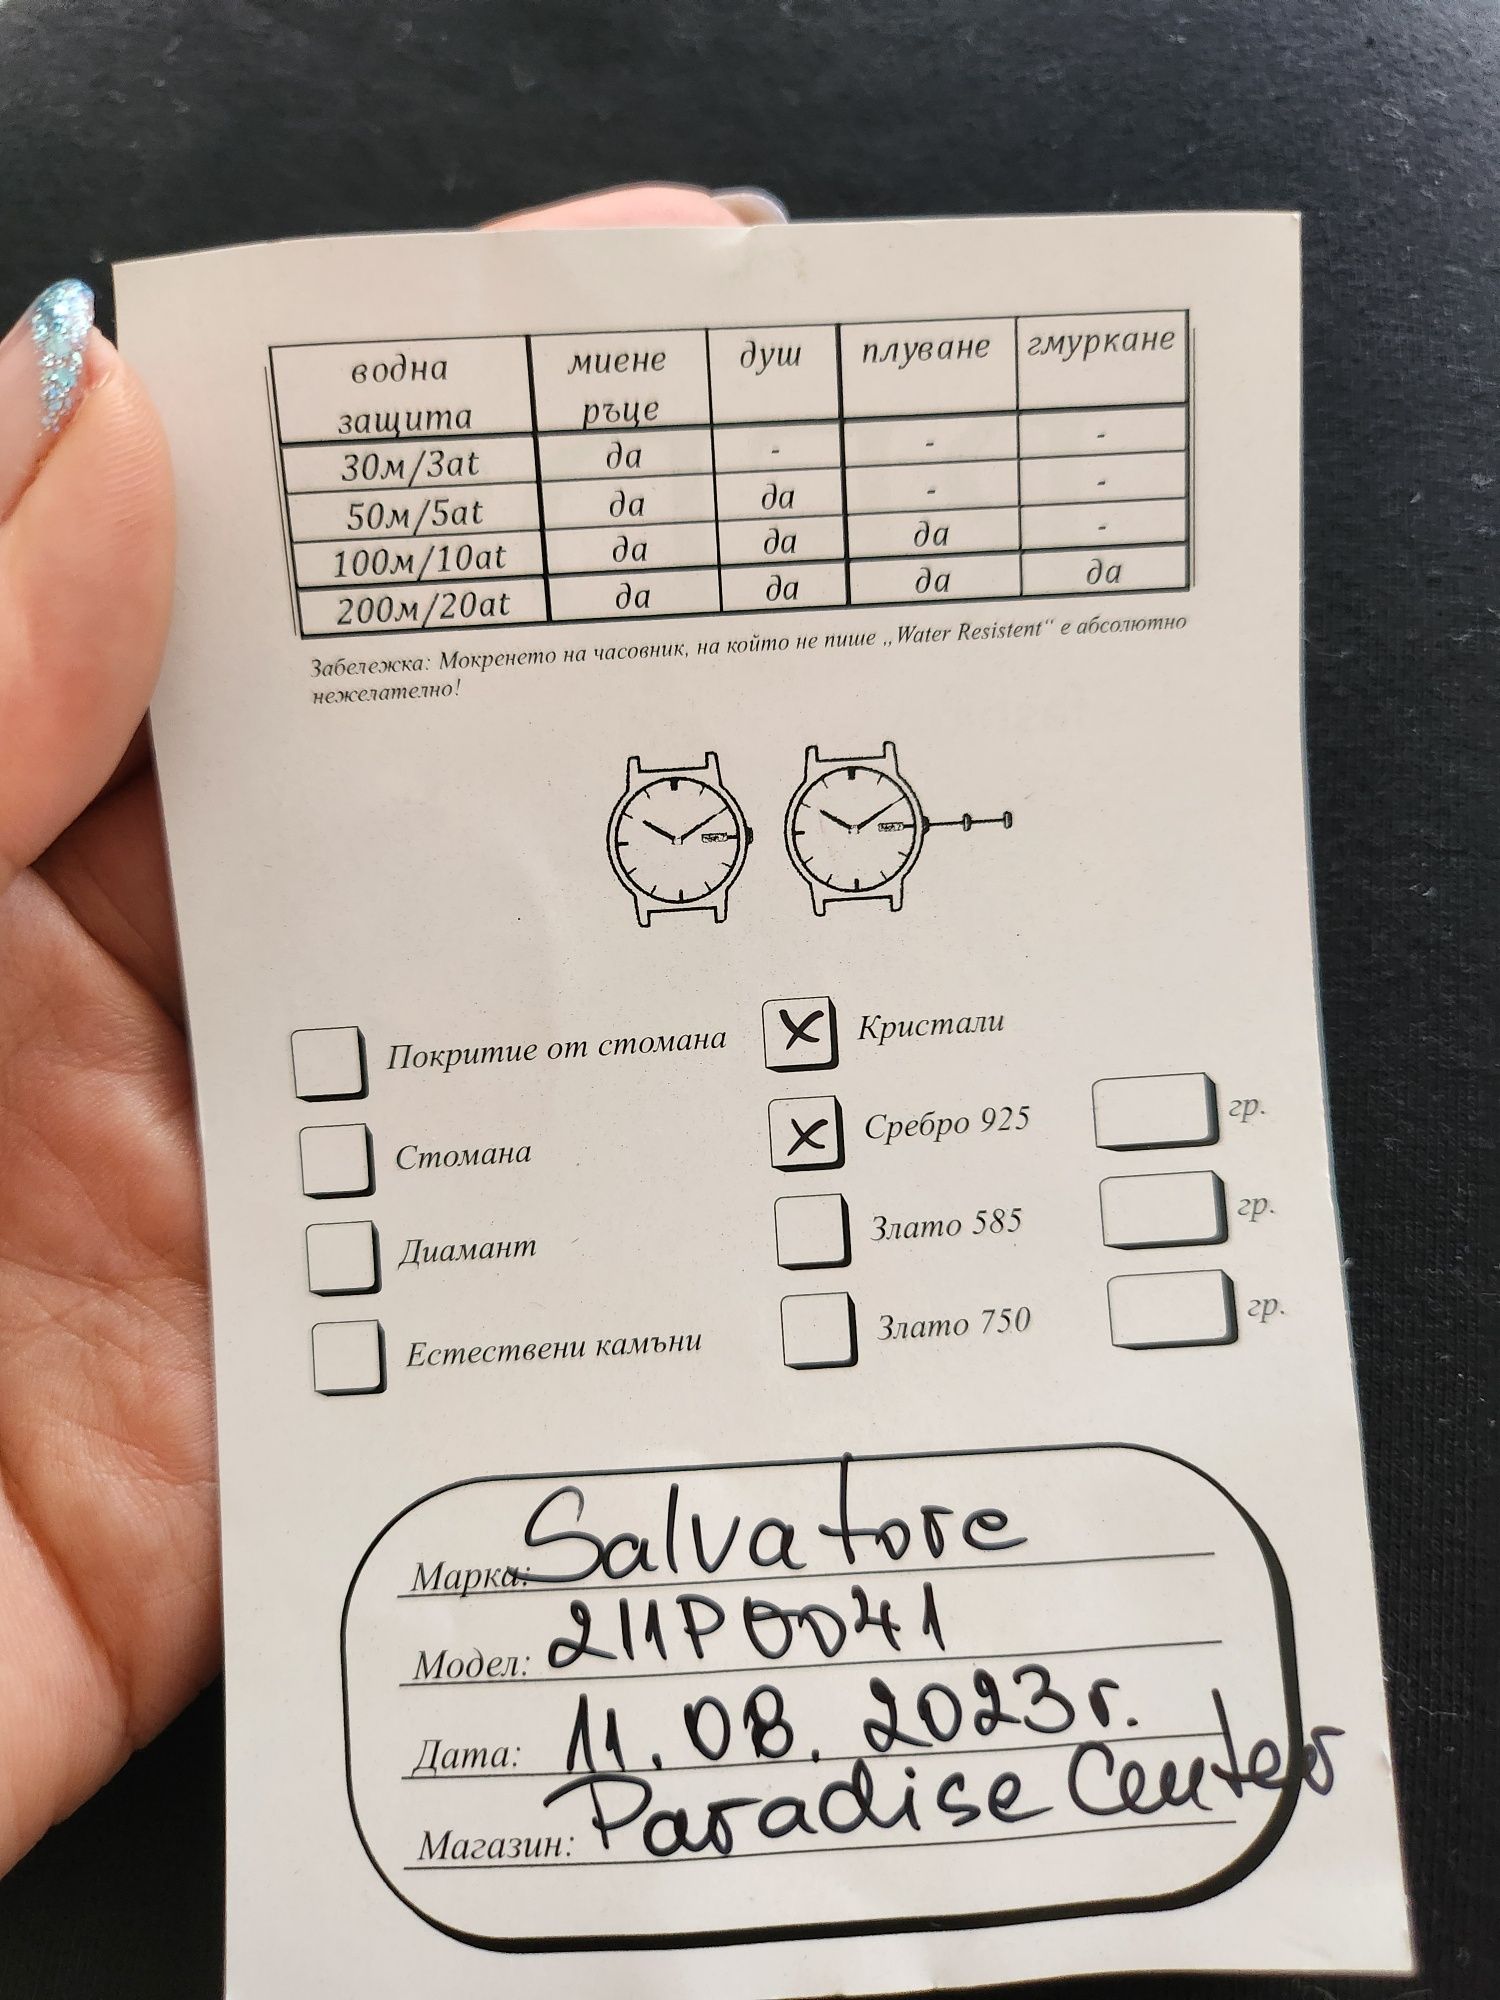 водна защита миене ръце душ плуване гмуркане
30м/3at да - - -
50м/5at да да - -
100м/10at да да да -
200м/20at да да да да
Забележка: Мокренето на часовник, на който не пише „Water Resistent“ е абсолютно
нежелателно!
Покритие от стомана X Кристали
Стомана X Сребро 925 гр.
Диамант Злато 585 гр.
Естествени камъни Злато 750 гр.
Марка: Salvatore
Модел: 211P0041
Дата: 11.08.2023г.
Магазин: Paradise Center